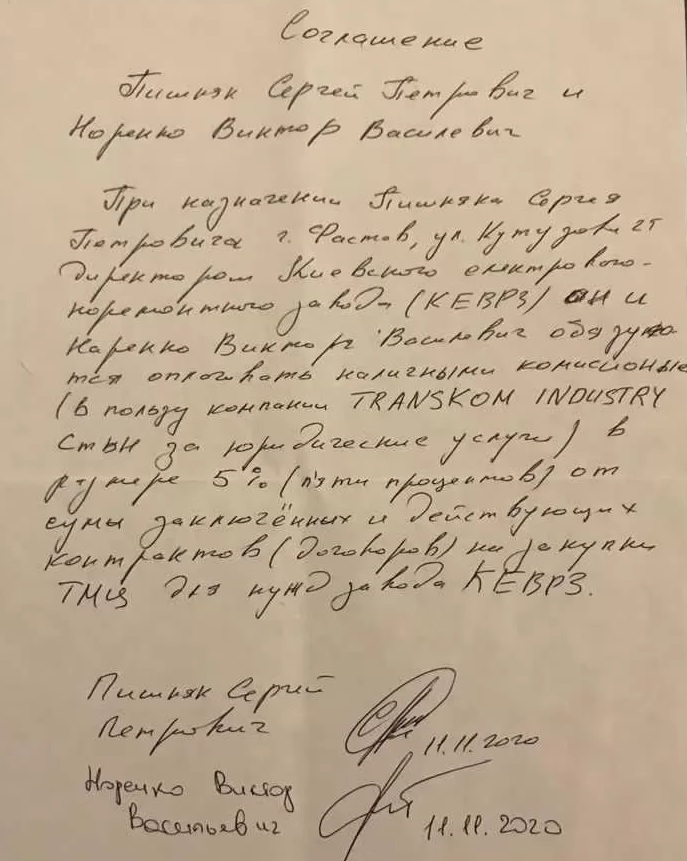 Соглашение
Пишняк Сергей Петрович и
Норенко Виктор Василевич
При назначении Пишняка Сергея
Петровича г. Фастов, ул. Кутузова 25
директором Киевского електроваго-
норемонтного завода (КЕВРЗ) он и
Наренко Виктор Василевич обязую
тся оплачивать наличными комисионые
(в пользу компании TRANSKOM INDUSTRY
за юридические услуги) в
размере 5% (п'яти процентов) от
сумы заключённых и действующих
контрактов (договоров) на закупки
ТМЦ для нужд завода КЕВРЗ.
Пишняк Сергей
Петрович
11.11.2020
Норенко Виктор
Васильевич
11.11.2020